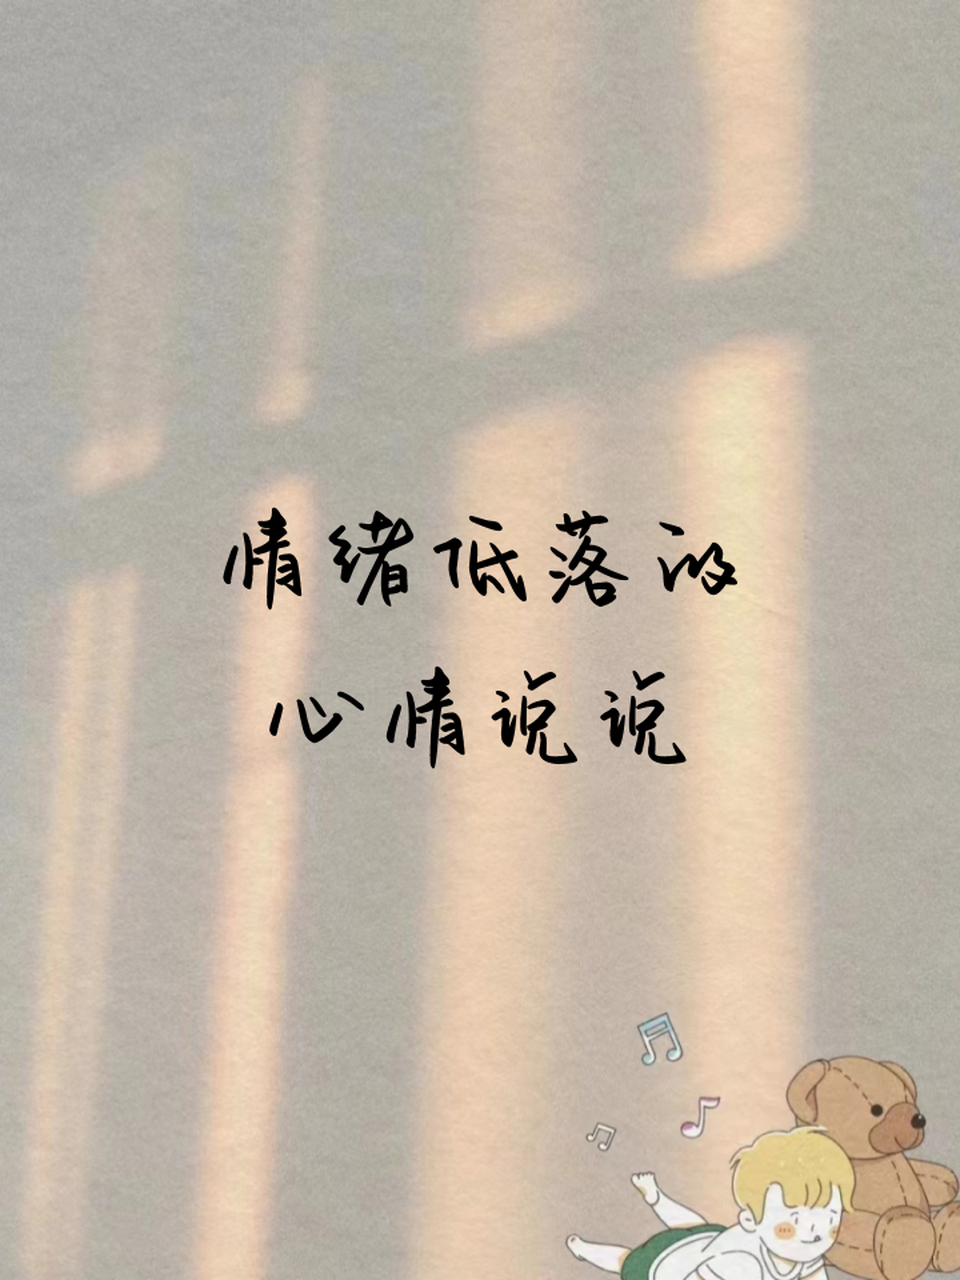 情绪低落的
心情说说